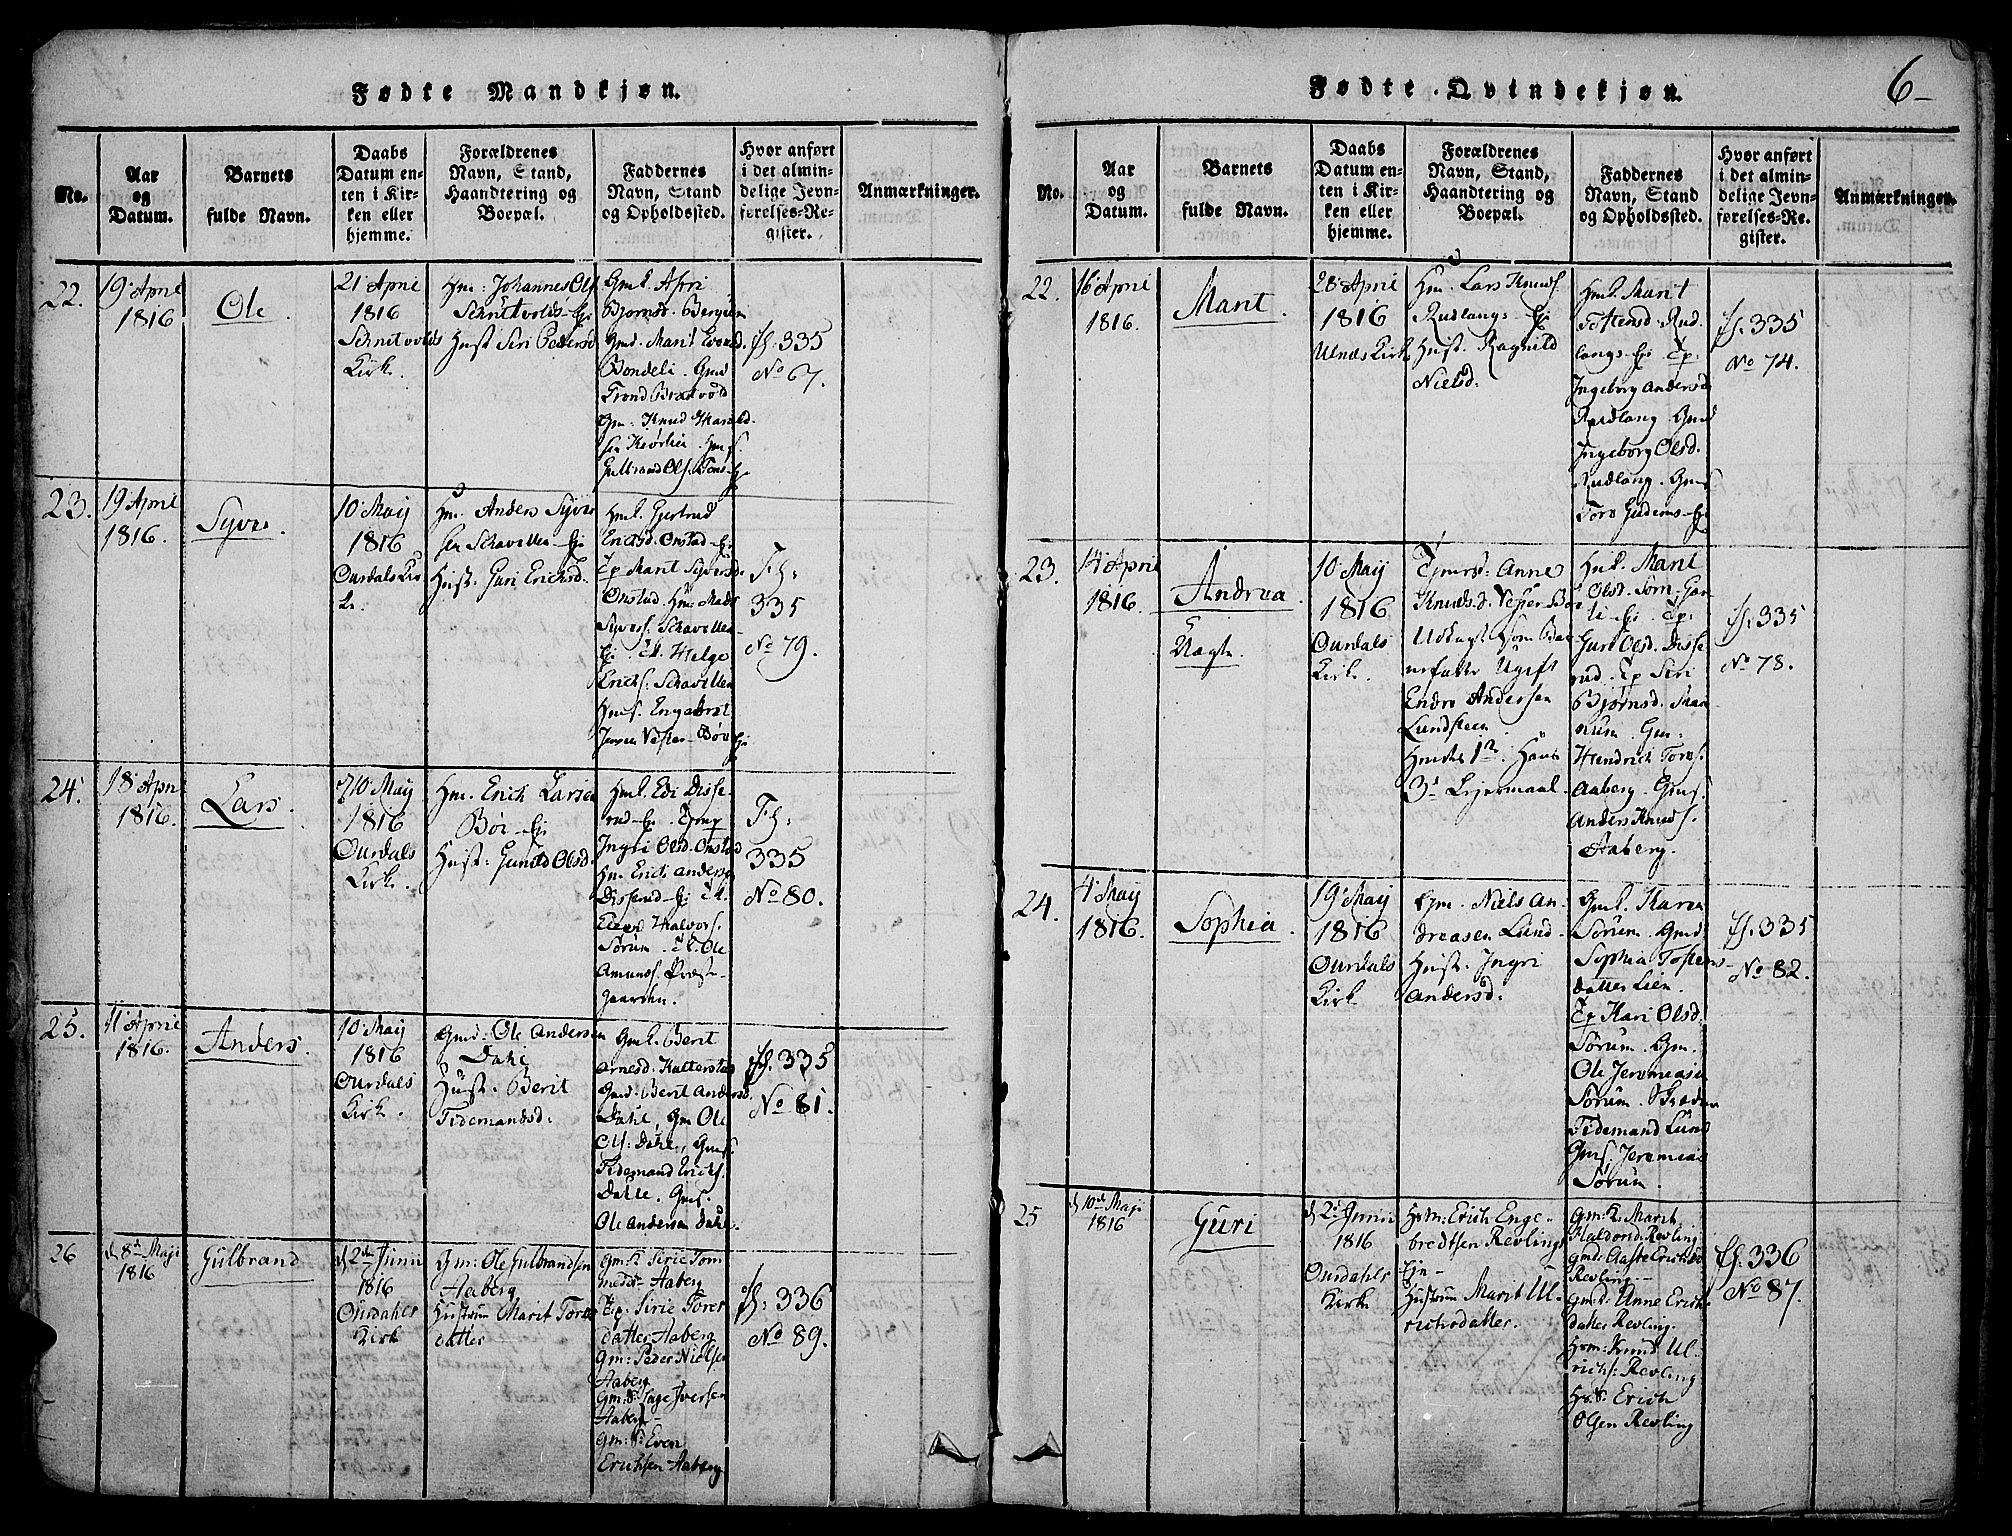 6
Fødte Mandkjøn.
No.
Aar
og
Datum.
Barnets
fulde Navn.
Daabs
Datum en-
ten i Kir-
ken eller
hjemme.
Forældrenes
Navn, Stand,
Haandtering og
Boepæl.
Faddernes
Navn, Stand
og Opholdssted.
Hvor anført
i det almin-
delige Jevn-
førelses-Re-
gister.
Anmærkninger.
22.
19 April
1816
Ole
21 April
1816
Kirk.
Hm: Johannes Ols
Hust Siri Peders
Gmd. Marit
Bondeli. Gmd
Gm: Knud
fl. 335
No 67.
23.
19 April
1816.
Syver.
10 May
1816
Ourdals Kir-
k.
Hm. Anders Syver
sen Schavellen Ej
Hust. Guri Ericksd.
Hml. Gjertrud
Ericsd. Onstad Ej
Tp Marit Syversd.
Onstad. Hm: Mads
Syvers. Schavellen
Ej. Tk. Helge
Erichs. Schavellen
Hms. Engebret
Jensen Vester-Bøe Ej
Fl:
335
No 79.
24.
18 April
1816.
Lars.
10 May
1816
Ourdals
Kirk.
Hm. Erich Larsen
Bøe Ej
Hust: Gunild Olsd.
Hml. Edi Disse-
rud Ej. Tjmp
Ingri Olsd. Onstad
Hm. Erich Anders
Disserud Ej Tk.
Halvors.
Sørum. Tk. Ole
Amunds. Præste-
gaarden.
Fl:
335
No 80.
25.
11 April
1816.
Anders.
10 May
1816
Ourdals
Kirk.
Gmd: Ole Andersen
Dahl
Hust. Berit
Tidemandsd:
Gml. Berit
Arnesd. Kattersta
Gmd. Berit Andersd.
Dahl, Gm Ole
Ols: Dahl, Gms.
Tidemand Erichs.
Dahle. Gms.
Ole Andersen Dahl.
fl. 335
No 81.
26
d 8de Maji
1816
Gulbrand
d 2den Junii
1816
Ourdahls
Kirk
Gm: Ole Gulbrandsen
Aaberg
Hustrue Marit Tores
datter
Gm: K Sirie Tom
medr Aaberg
Tp: Sirie Tores
datter Aaberg
Gm: Peder Nielsen
Aaberg
Gm: S: Tage Iversen
Aaberg
Gm: S: Even
Erichsen Aaberg
fl: 336
No 89.
Fødte Qvindekjøn.
No.
Aar
og
Datum.
Barnets
fulde Navn.
Daabs
Datum en-
ten i Kir-
ken eller
hjemme.
Forældrenes
Navn, Stand,
Haandtering og
Boepæl.
Faddernes
Navn, Stand
og Opholdssted.
Hvor anført
i det almin-
delige Jevn-
førelses-Re-
gister.
Anmærkninger.
22.
16 April
1816.
Marit.
28 April
1816
Ulnæs Kirk
Hm. Lars Knuds.
Rudlangs Ej
Hust. Ragnild
Nielsd.
Hml. Marit
Tostensd. Rud-
langs Ej Tp.
Ingeborg Andersd
Rudlang. Gmd
Ingeborg Olsd.
Rudlang. Gms
Tore Ej
fl. 335
No 74.
23.
14 April
1816.
Andrea
Uægte.
10 May
1816
Ourdals
Kirk.
Anne
Knudsd. Vester-Bøe
Udlagt som Bar-
nefader Ugift
Endre Andersen
Lundsteen
Hendes 1te Hans
3de Lejermaal
Hml. Marit
Olsd. Ej. Tp:
Guri Olsd. Disse-
rud. Tp Siri
Bjørnsd.
Gm:
Hendrich Tores.
Aaberg. Gms.
Anders Knuds.
Aaberg.
fl. 335
No 78.
24.
4 May
1816.
Sophia.
19 May
1816
Ourdals
Kirk
Gm. Niels An-
dreasen Lund
Hust: Ingri
Andersd:
Gml. Karen
Sørum. Gmd
Sophia Tostens-
datter Lien.
Tp Kari Olsd.
Sørum. Gm.
Ole Jeremiasen
Sørum.
Tidemand Lund
Gms. Jeremias
Sørum.
fl. 335
No 82.
25
d 10de Maji
1816
Guri
d 2 Junii
1816
Ourdahls
Kirk
Hm: Erich Enge-
bredtsen Revlings
Eje
Hustrue Marit Ul-
richsdatter.
Gm: K. Marit
Haldorsd. Revling
Gmd: Aaste Erichsd.
Revling
Gmd: Anne Erichs-
datter Revling.
Hm: Knud Ul-
richs: Revling
Hs: S. Erich
Olsen Revling
fl. 336
No 87.